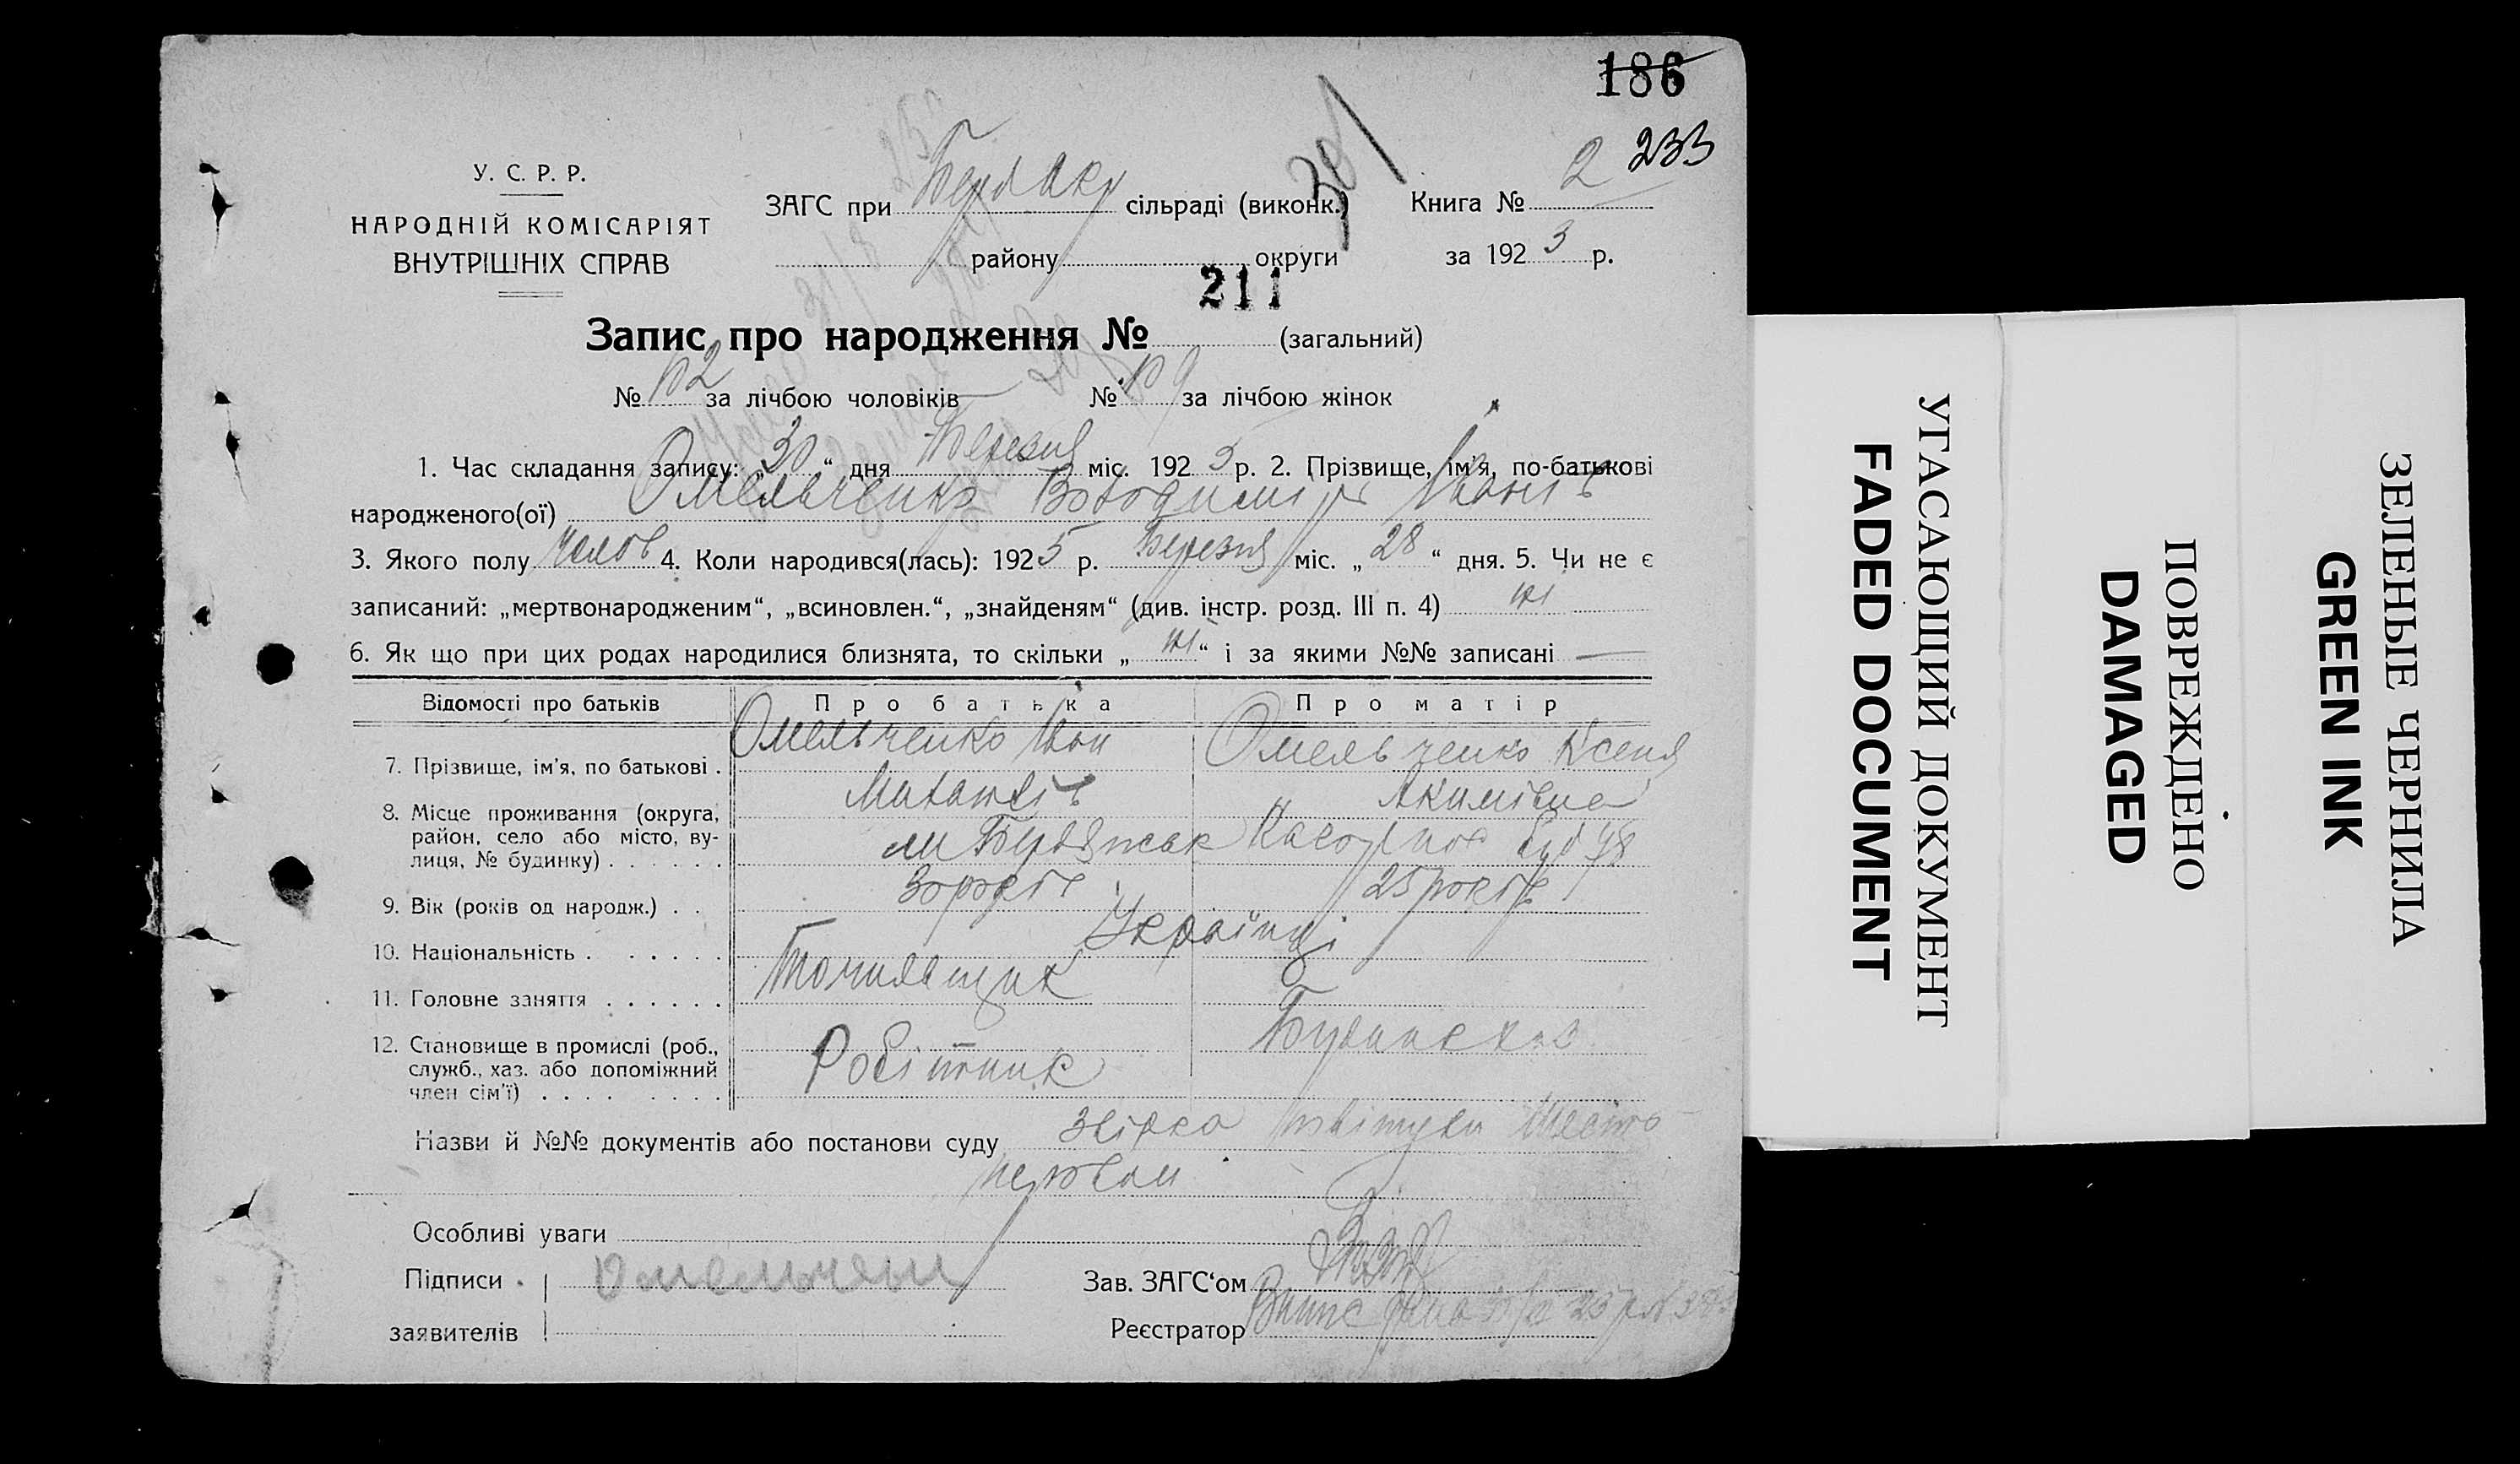 186
2 233
У. С. Р. Р.
НАРОДНІЙ КОМІСАРІЯТ
ВНУТРІШНІХ СПРАВ
ЗАГС при сільраді (виконк.) Книга №
району округи за 192 3 р.
301
211
Запис про народження № (загальний)
№ за лічбою чоловіків № за лічбою жінок
1. Час складання запису: „30“ дня Березня міс. 192 5 р. 2. Прізвище, ім'я, по-батькові
народженого(ої) Омельченко Володимір Іванів
3. Якого полу чолов 4. Коли народився(лась): 192 5 р. Березня міс. „28“ дня. 5. Чи не є
записаний: „мертвонародженим“, „всиновлен.“, „знайденям“ (див. інстр. розд. III п. 4) ні
6. Як що при цих родах народилися близнята, то скільки „ні“ і за якими №№ записані —
Відомості про батьків Про батька Про матір
7. Прізвище, ім'я, по батькові . Омельченко Іван Омельченко Ксеня
Акимівна
8. Місце проживання (округа,
район, село або місто, ву-
лиця, № будинку) . . . . . . 48
9. Вік (років од народж.) . . 30 років 25 років
10. Національність . . . . . . Українці
11. Головне заняття . . . . . . Точильщик
12. Становище в промислі (роб.,
служб., хаз. або допоміжний
член сім'ї) . . . . . . . . Робітник
Назви й №№ документів або постанови суду
Особливі уваги
Підписи Зав. ЗАГС'ом
заявителів Реєстратор
УГАСАЮЩИЙ ДОКУМЕНТ
FADED DOCUMENT
ПОВРЕЖДЕНО
DAMAGED
ЗЕЛЕНЫЕ ЧЕРНИЛА
GREEN INK